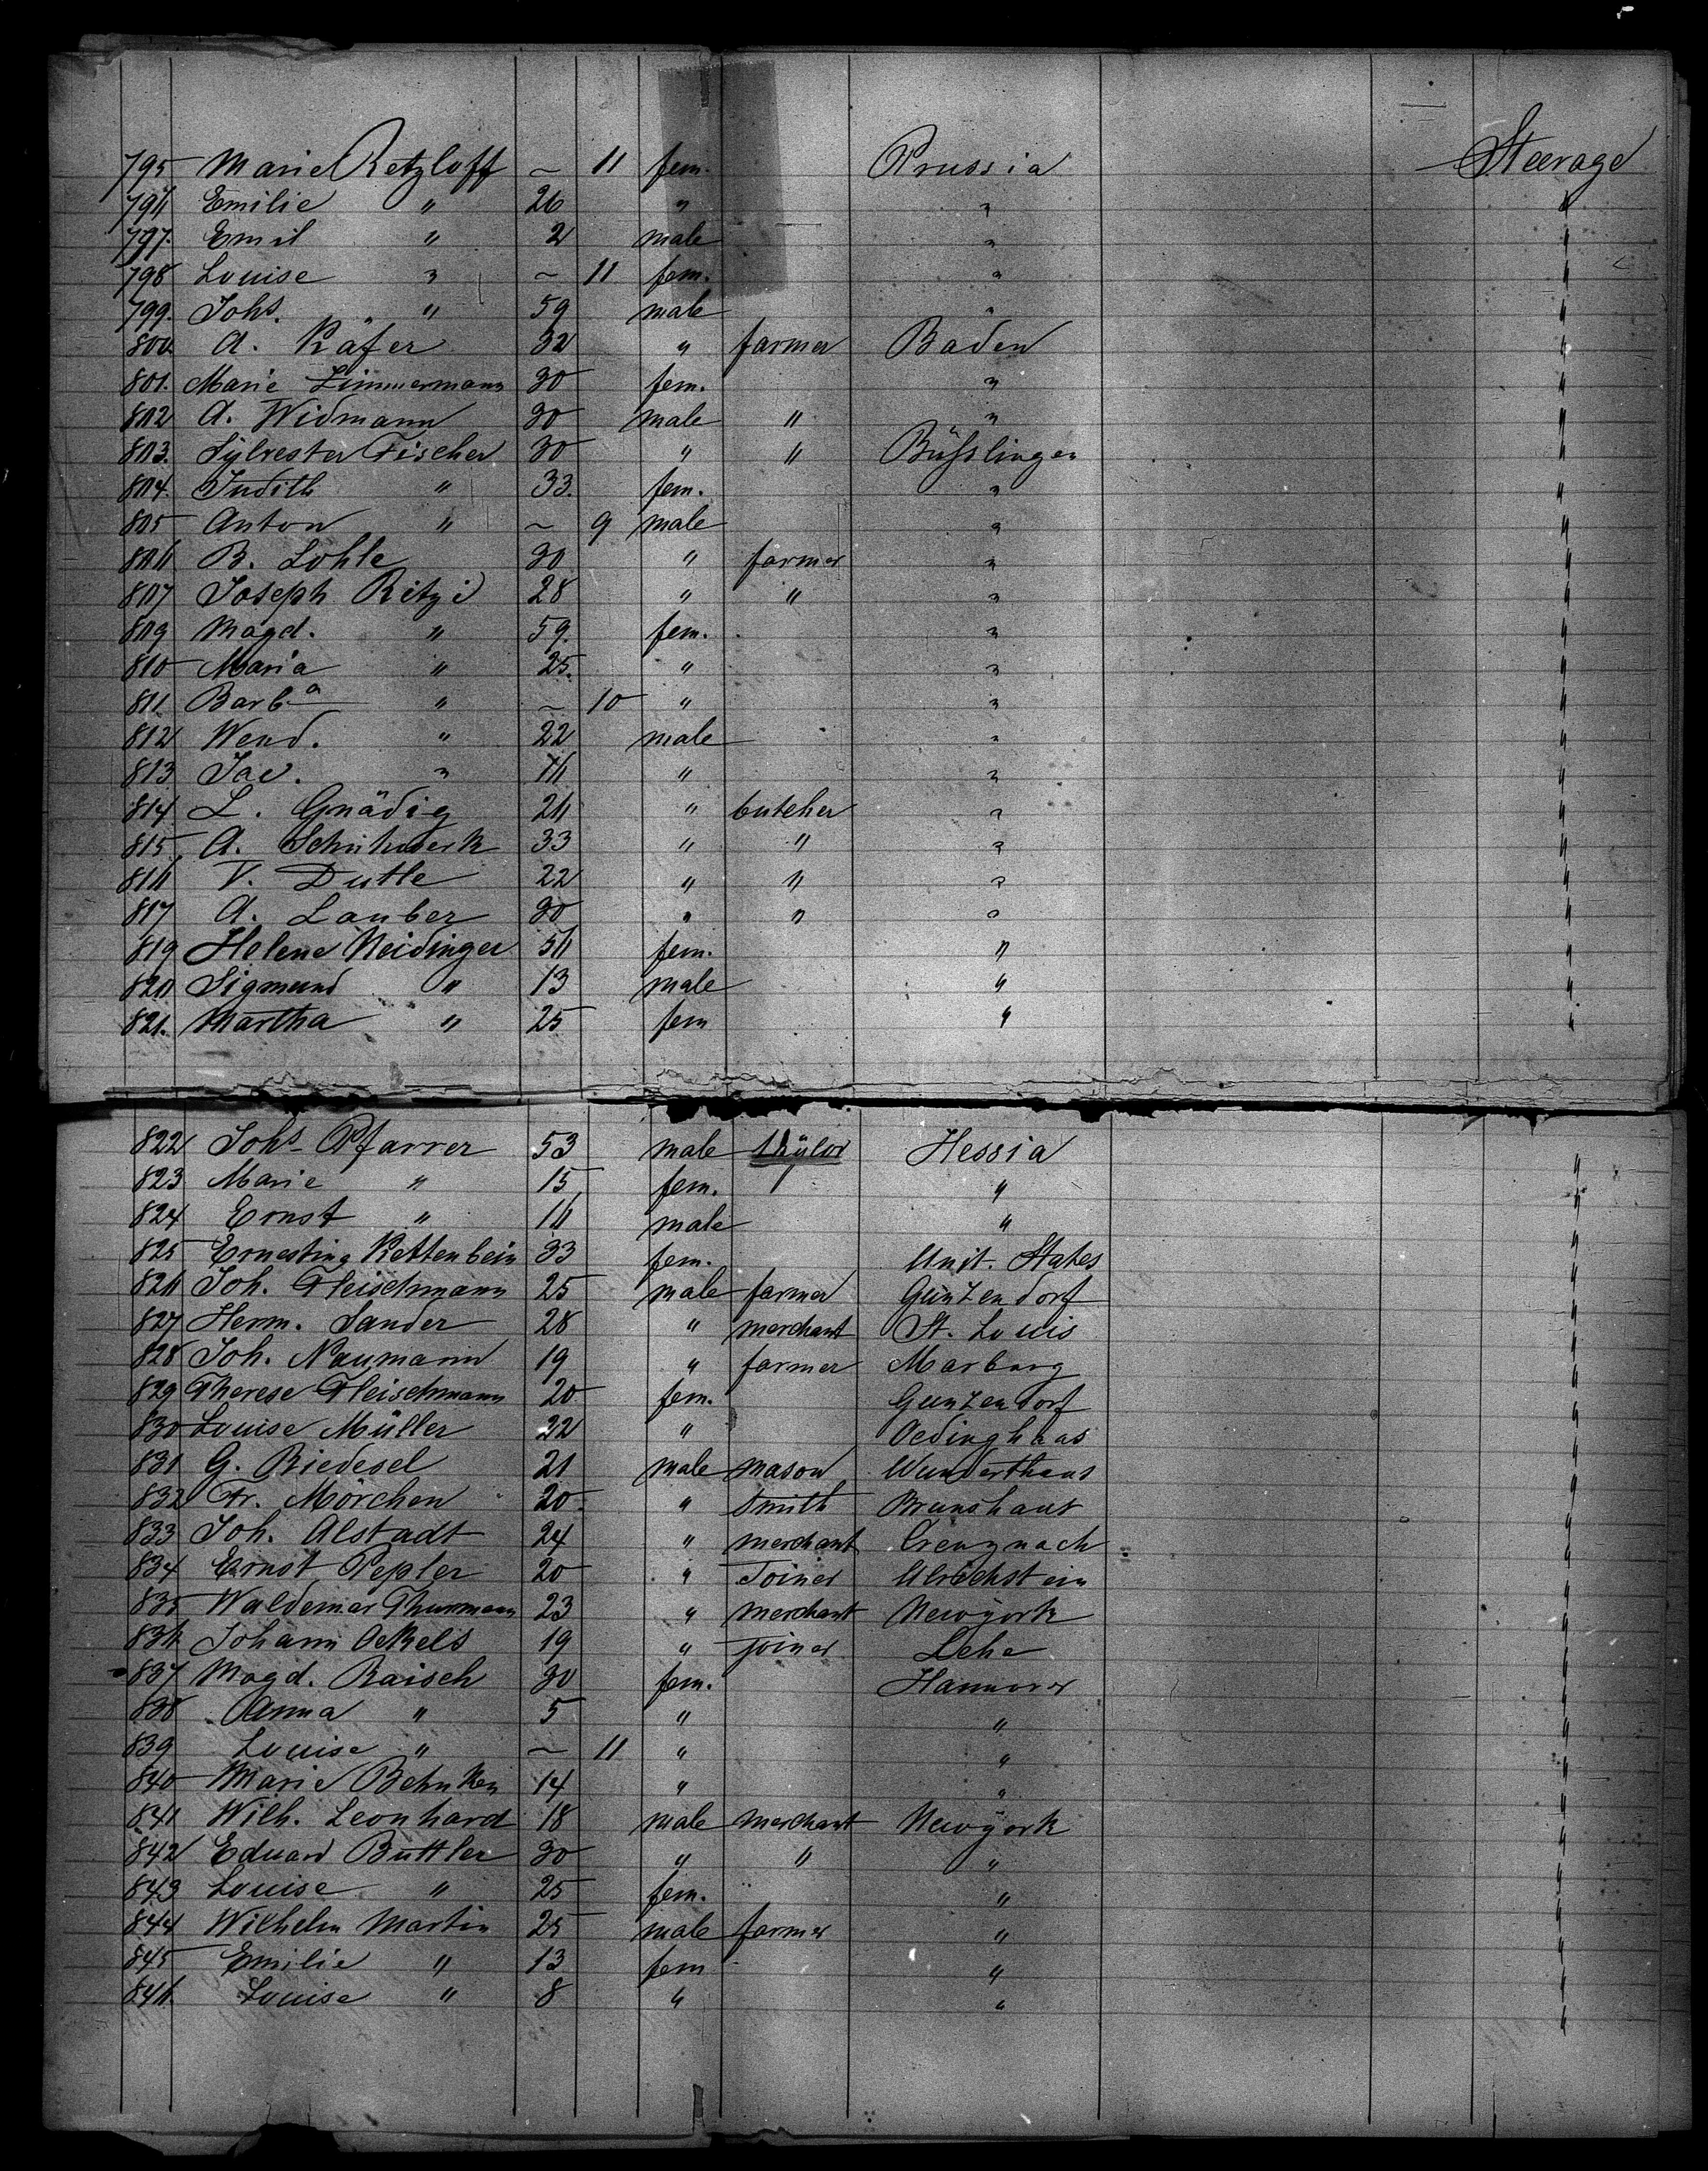 795 Marie Retzloff ~ 11 fem. Prussia Steerage
796 Emilie " 26 " " "
797. Emil " 2 male " "
798 Louise " ~ 11 fem. " "
799. Johs. " 59 male " "
800. A. Käfer 32 " farmer Baden "
801. Marie Zimmermann 30 fem. " "
802 A. Widmann 30 male " " "
803. Sylvester Fischer 30 " " Büsslingen "
804. Judith " 33. fem. " "
805 Anton " ~ 9 male " "
806 B. Lohle 30 " farmer " "
807 Joseph Ritzi 28 " " " "
809 Magd. " 59. fem. " "
810 Maria " 25. " " "
811 Barba " ~ 10 " " "
812 Wend. " 22 male " "
813 Jac. " 16 " " "
814. L. Gnädig 26 " butcher " "
815. A. Schuhwerk 33 " " " "
816 V. Dutle 22 " " " "
817 A. Lauber 30 " " " "
819 Helene Neidinger 56 fem. " "
820 Sigmund " 13 male " "
821. Martha " 25 fem " "
822 Johs Pfarrer 53 male Hessia "
823 Marie " 15 fem. " "
824 Ernst " 16 male " "
825 Ernestine Kettenbein 33 fem. Unit. States "
826 Joh. Fleischmann 25 male farmer Gunzendorf "
827 Herm. Sander 28 " merchant St. Louis "
828 Joh. Naumann 19 " farmer Marburg "
829 Therese Fleischmann 20 fem. Gunzendorf "
830 Louise Müller 22 " Oedinghaus "
831 G. Riedesel 21 male mason Wunderthaus "
832 Fr. Mörchen 20 " Smith Brunshaus "
833 Joh. Alstadt 24 " merchant Creuznach "
834 Ernst Pepler 20 " Joiner Ulrichstein "
835 Waldemar Thurmann 23 " merchant Newyork "
836 Johann Oekels 19 " joiner Lehe "
837 Magd. Raisch 30 fem. Hannover "
838 Anna " 5 " " "
839 Louise " ~ 11 " " "
840 Marie Behnken 14 " " "
841 Wilh. Leonhard 18 male merchant Newyork "
842 Eduard Buttler 30 " " " "
843 Louise " 25 fem. " "
844 Wilhelm Martin 25 male farmer " "
845 Emilie " 13 fem " "
846. Louise " 8 " " "